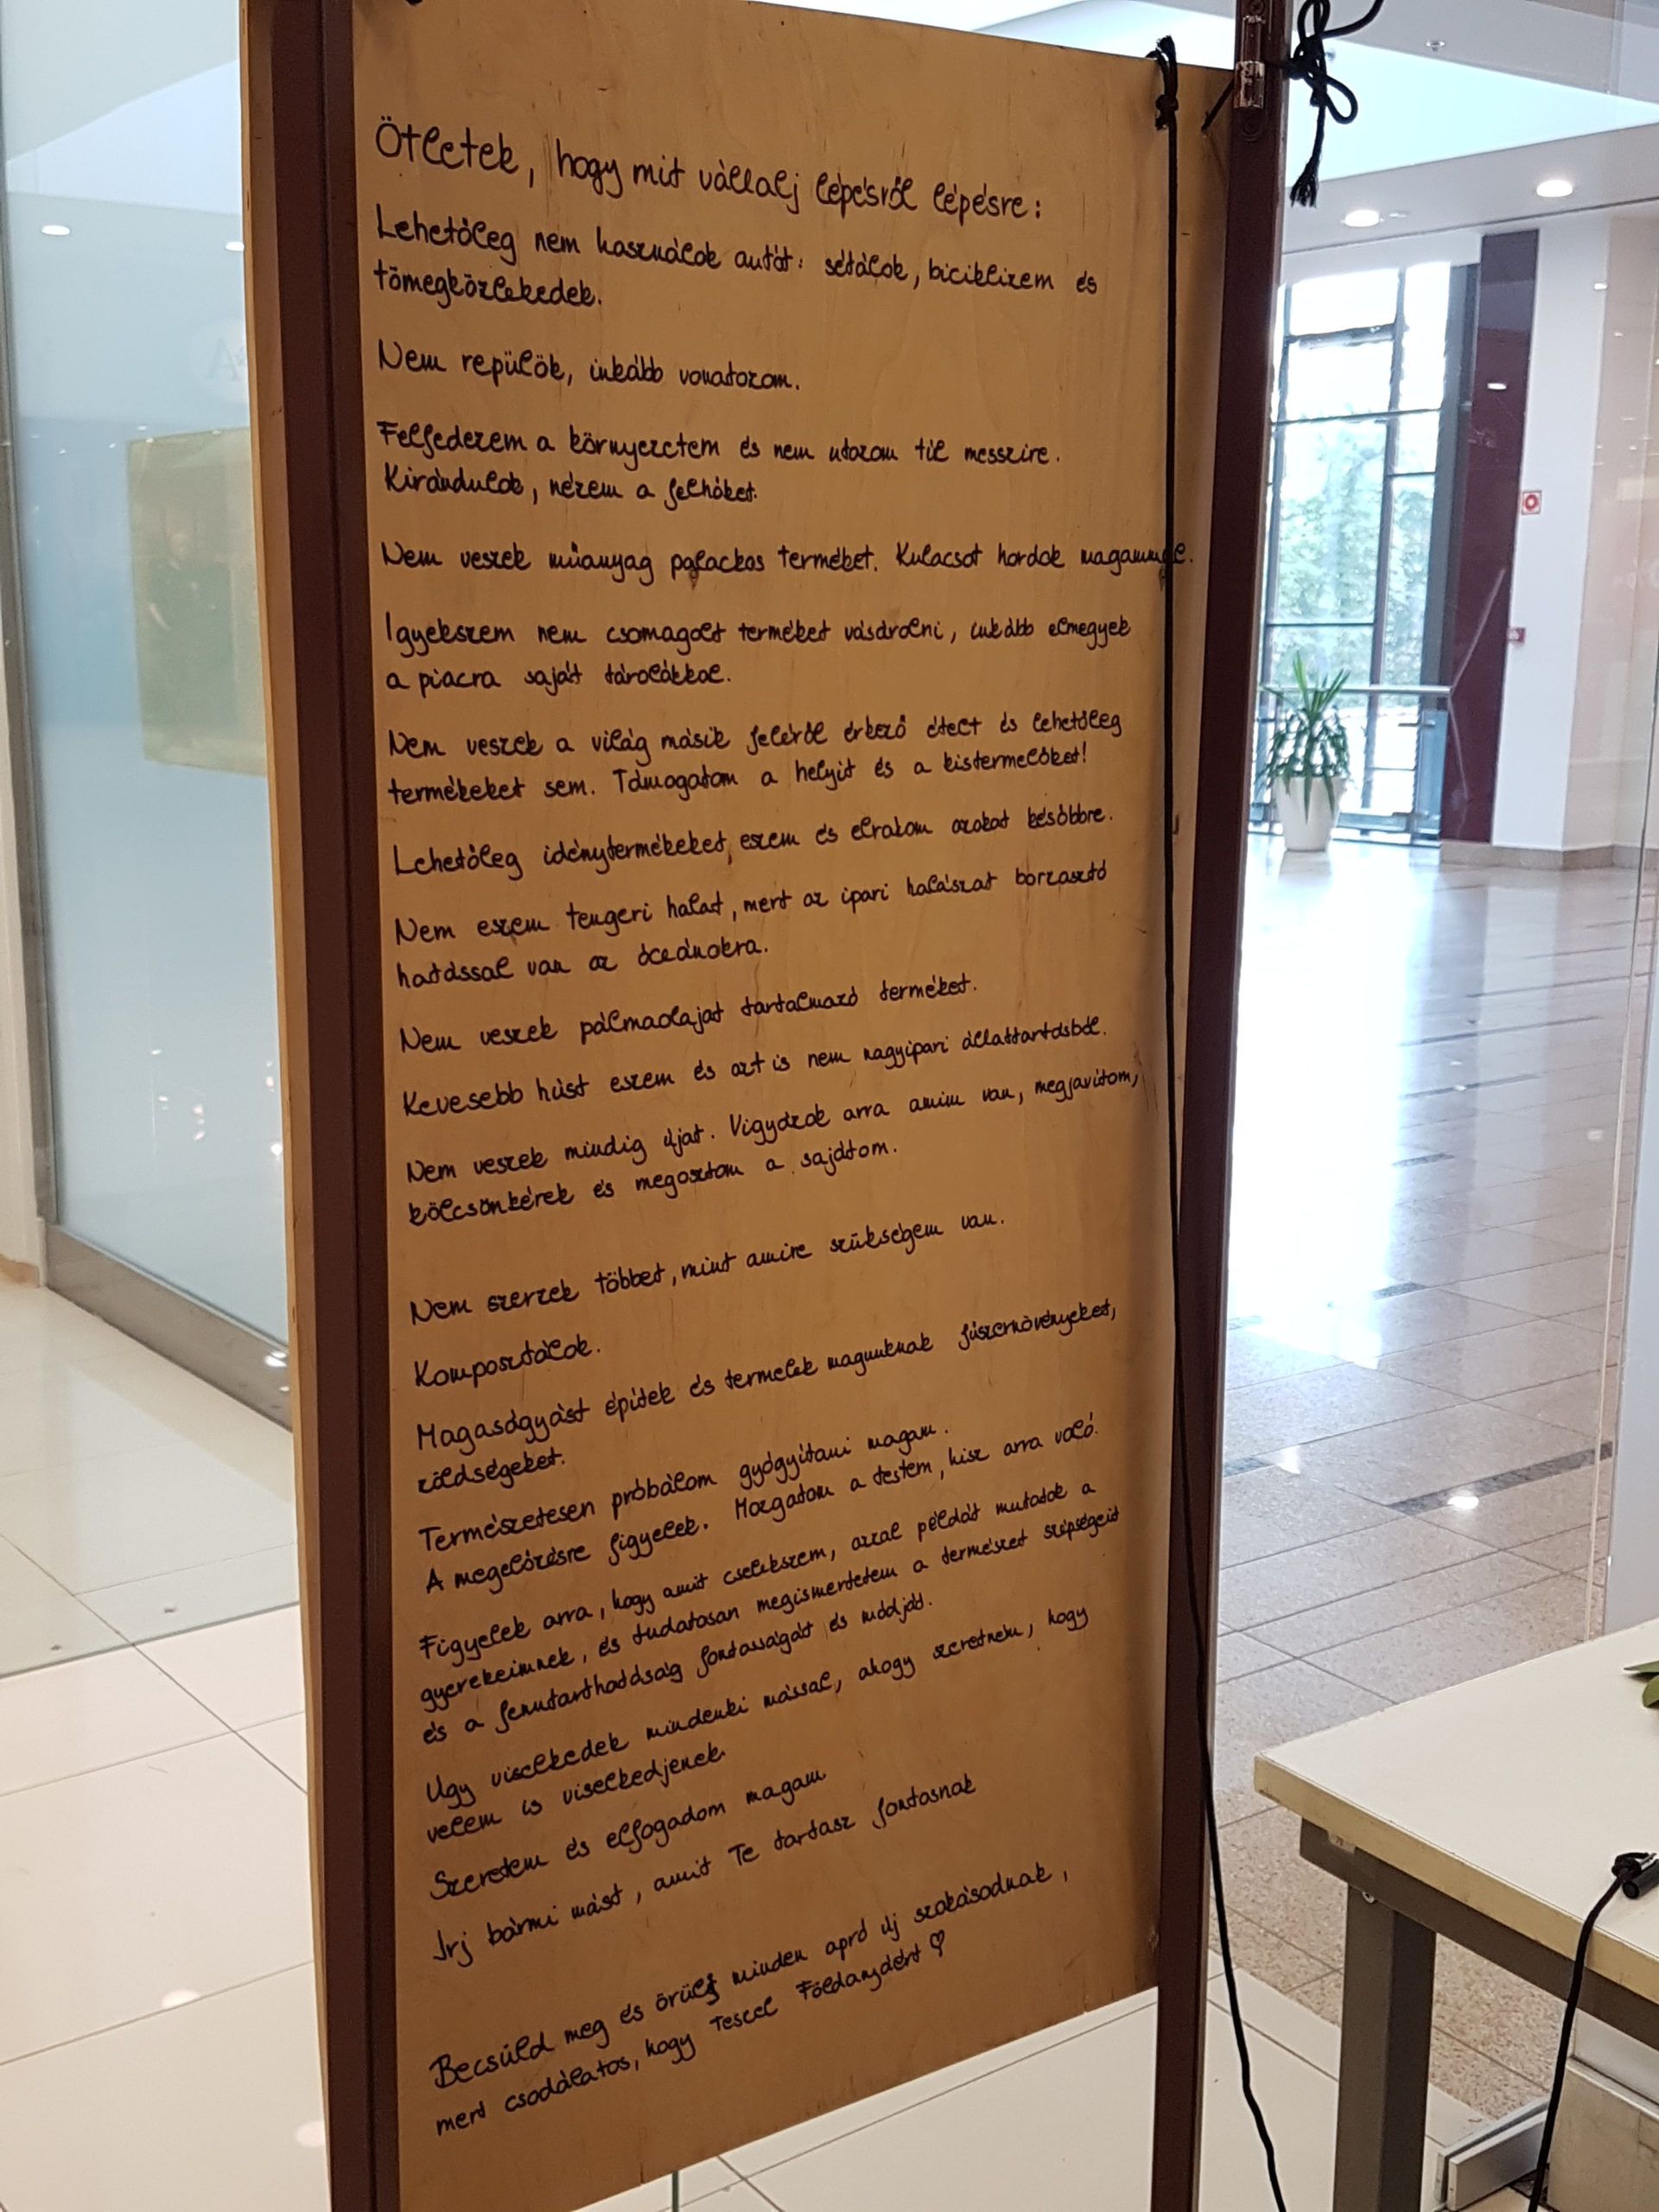 Ötletek, hogy mit vállalj lépésről lépésre:
Lehetőleg nem használok autót: sétálok, biciklizem és
tömegközlekedek.
Nem repülök, inkább vonatozom.
Felfedezem a környezetem és nem utazom túl messzire.
Kirándulok, nézem a felhőket.
Nem veszek műanyag palackos terméket. Kulacsot hordok magammal.
Igyekszem nem csomagolt terméket vásárolni, inkább elmegyek
a piacra saját tárolókkal.
Nem veszek a világ másik feléről érkező ételt és lehetőleg
termékeket sem. Támogatom a helyit és a kistermelőket!
Lehetőleg idénytermékeket eszem és elrakom azokat későbbre.
Nem eszem tengeri halat, mert az ipari halászat borzasztó
hatással van az óceánokra.
Nem veszek pálmaolajat tartalmazó terméket.
Kevesebb húst eszem és azt is nem nagyipari állattartásból.
Nem veszek mindig újat. Vigyázok arra amim van, megjavítom,
kölcsönkérek és megosztom a sajátom.
Nem szerzek többet, mint amire szükségem van.
Komposztálok.
Magaságyást építek és termelek magunknak fűszernövényeket,
zöldségeket.
Természetesen próbálom gyógyítani magam.
A megelőzésre figyelek. Mozgatom a testem, hisz arra való.
Figyelek arra, hogy amit cselekszem, azzal példát mutatok a
gyerekeimnek, és tudatosan megismertetem a természet szépségeit
és a fenntarthatóság fontosságát és módját.
Úgy viselkedek mindenki mással, ahogy szeretném, hogy
velem is viselkedjenek.
Szeretem és elfogadom magam.
Írj bármi mást, amit Te tartasz fontosnak
Becsüld meg és örülj minden apró új szokásodnak,
mert csodálatos, hogy teszel Földanyáért ♡